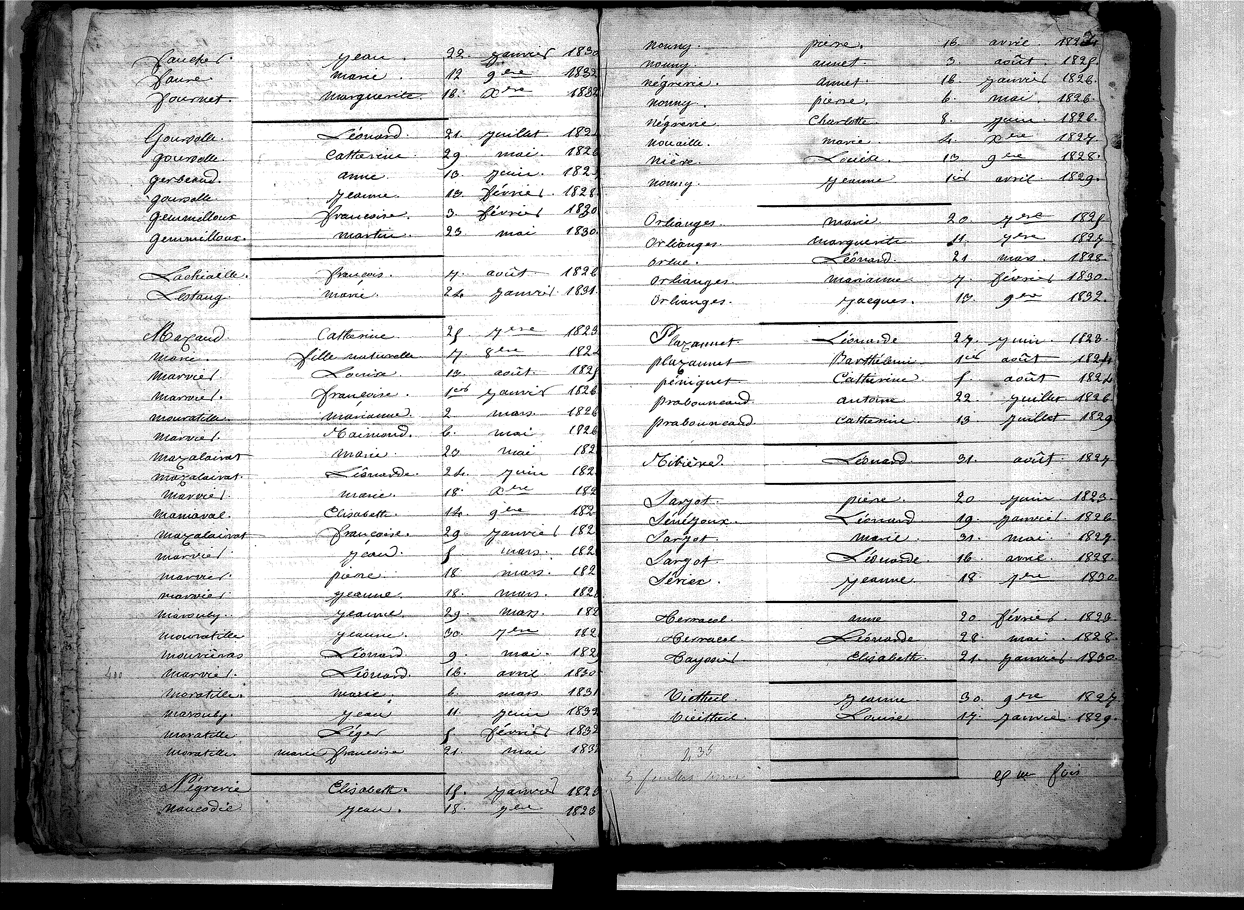 faucher. jean. 22. janvier 1830
faure. marie 12 9ere 1832
fournet. marguerite. 18. Xere 1832
Goursolle. Léonard. 21. juillet 182
goursolle. Catherine. 29. mai. 1826
gerbeaud. anne. 13. juin. 182
goursolle jeanne. 13. février. 1828
gemmelloux françoise. 3. février 1830
gemmilloux. martin. 23. mai 1830.
Lachiaille. françois. 7. août. 1826
Lestang. marie. 24. janvier 1831.
Mazaud Catherine 25 7ere 1823
marie. fille naturelle 7. 8ere 1824
marvier. Louise 13. août. 1825
marvier. françoise. 1er janvier 1826
mouratille. marianne. 2 mars. 1826
marvier. Raimond. 6. mai 1826
mazalairat marie. 20. mai 182
mazalairat. Léonarde. 24. juin 182
marvier marie. 18. Xere 182
manaval. Elisabeth. 14. 9ere 182
mazalairat françoise. 29. janvier 182
marvier. jean. 5. mars. 182
marvier. pierre. 18 mars. 182
marvier jeanne. 18. mars. 182
marouby. jeanne. 29. mars. 182
mouratille jeanne. 30. 7ere 182
mouriéras Léonard 9. mai. 1829
400 marvier. Léonard. 16. avril 1830
moratille. marie. 6. mars. 1831
marouby. jean. 11. juin 1832
moratille Léger 5 février 1832
moratille. marie françoise 21. mai 1832
Négrerie Elisabeth. 15. janvier 1823
naucodie jean. 18. 7ere 1823
nouny. pierre. 16. avril 1824
nouny. annet. 3. août. 1825.
négrerie. annet 16. janvier 1826.
nouny. pierre. 6. mai. 1826.
négrerie Charlotte. 8. juin. 1826.
nouaille. marie. 4. Xere 1827.
nière. Louise. 13. 9ere 1828.
nouny. jeanne. 1er avril. 1829.
Orlianges. marie. 20. 7ere 1825
Orlianges. marguerite. 11. 7ere 1827
orlué. Léonard. 21. mars. 1828.
orlianges. marianne 7. février 1830.
orlianges. jacques. 13. 9ere 1832.
Plazannet Léonarde 27. juin 1823.
plazannet Barthélemi. 1er août 1824
péniguet Catherine. 5. août 1824
prabouneaud. antoine 22. juillet 1826.
prabouneaud Catherine. 13 juillet 1829
Ribière Léonard. 31. août. 1827
Sarjot. pierre. 20 juin 1823.
Sénéjoux. Léonard 19. janvier 1826
Sarjot. marie 31. mai. 1827.
Sarjot Léonarde 16. avril. 1828
Sérier. jeanne. 18. 7ere 1830.
Terracol. anne 20. février 1823.
Terracol. Léonarde 28. mai. 1828.
Tayssier Elisabeth. 21. janvier 1830.
Vietheil jeanne. 30. 9ere 1827
Vieitheil. Louise 17. janvier. 1829.
235
fois